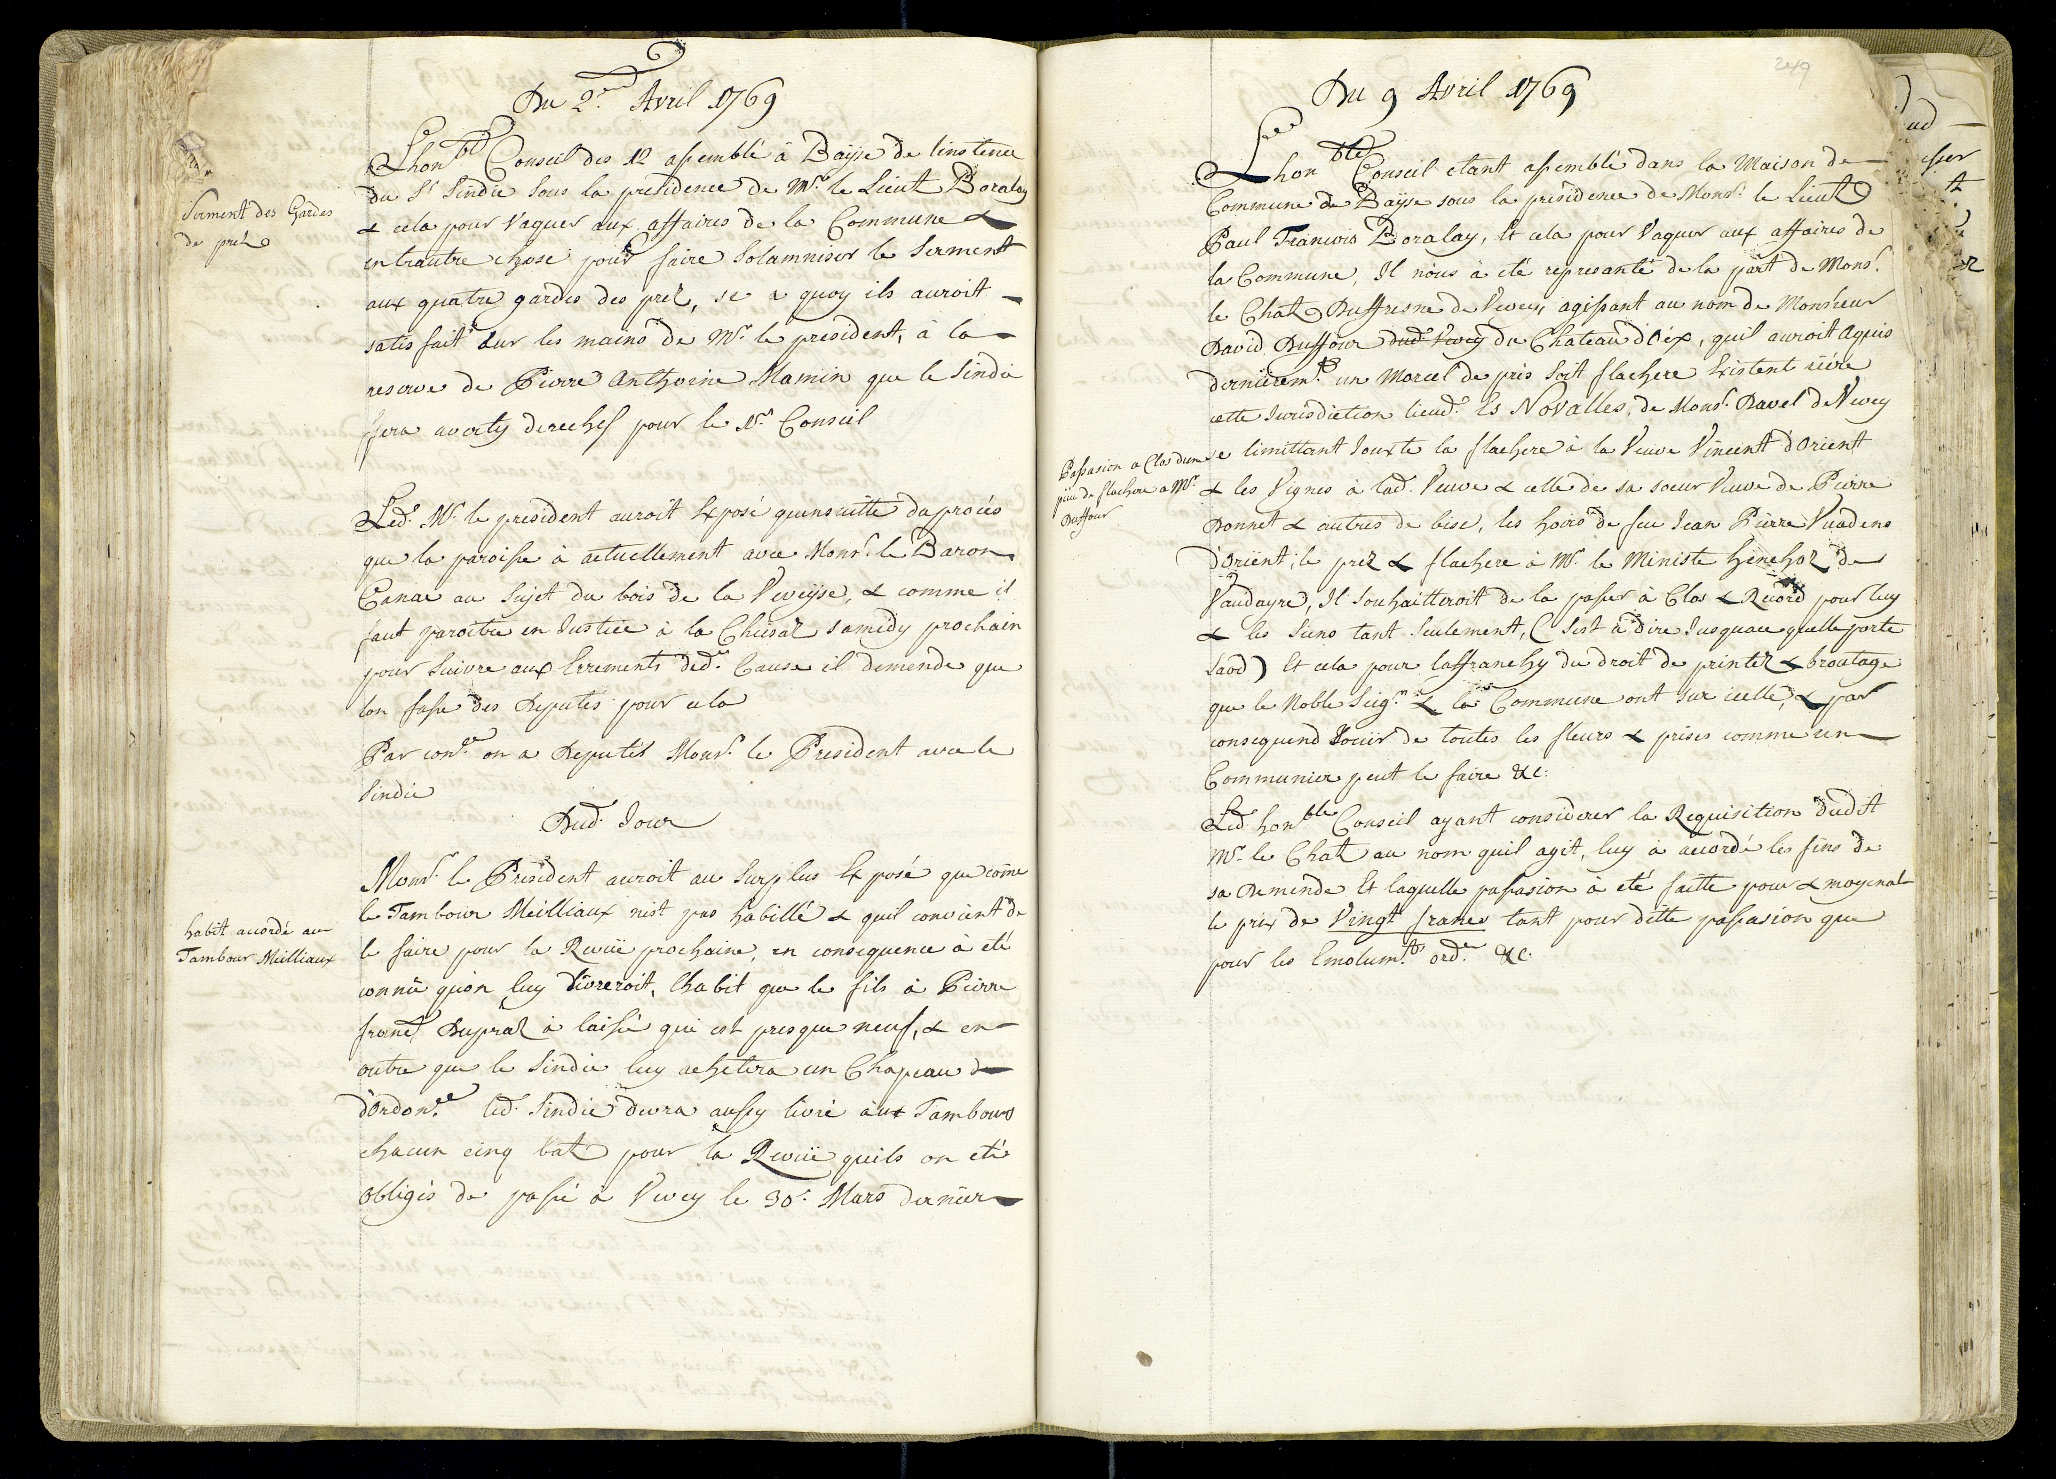 Du 2.e Avril 1769
Lhon.ble Conseil des 12 assemblé à Baÿse de linstence
du S.r Sindic sous la presidence de Mr. le Lieut Doralay
& cela pour Vaquer aux affaires de la Commune &
entrautre chose pour faire Solamniser le Serment
Serment des Gardes
de prel
aux quatre gardes des prel, se a quoy ils auroit
satisfait sur les mains de Mr. le president, à la
reserve de Pierre Anthoine Mamin que le Sindic
sera averty derechef pour le 1er. Conseil
Led. Mr. le president auroit Exposé quensuitte du procés
que la paroisse à actuellement avec Mons.r le Baron
Canac au Sujet du bois de la Veveÿse, & comme il
faut paroitre en Justice à la Chiesaz samedy prochain
pour Suivre aux Errements de d. Cause il demende que
lon fasse des Deputés pour cela
Par con.ce on a Deputés Mons.r le President avec le
Sindic
Dud. Jour
Mons.r le President auroit au Surplus Exposé que côme
le Tambour Meilliaux nest pas habillé & quil convient de
habit accordé au
Tambour Meilliaux
le faire pour la Revüe prochaine, en consequence à eté
connû quon luy livreroit, Lhabit que le fils à Pierre
franc. Dupraz à laissé qui est presque neuf, & en
outre que le Sindic luy achetera un Chapeau d
d'ordon.ce led. Sindic devra aussy livré aux Tambours
chacun cinq batz pour la Revüe quils on eté
obligés de passé à Vevey le 30.e Mars dernier
249
Du 9 Avril 1769
Lhon.ble Conseil etant assemblé dans la Maison de
Commune de Baÿse sous la presidence de Mons.r le Lieut
Paul François Doralay, Et cela pour Vaquer aux affaires de
la Commune, Il nous à eté represanté de la part de Mons.r
le Chat. Duffresne de Vevey, agissant au nom de Monsieur
David Duffour dud. Vevey du Chateau d'Oéx, quil auroit aquis
dernierem.t un Morcel de prés Soit flachere Existent riére
cette Jurisdiction lieud. Es Novalles, de Mons.r Davel de Vevey
se limittant Jouxte la flachere à la Veuve Vincent d'Orient
Passasion a Clos dune
piéce de flachere a Mr.
Duffour
& les Vignes à lad. Veuve & celle de sa soeur Veuve de Pierre
Donnet & autres de bise, les hoirs de feu Jean Pierre Vuadens
d'Orient, le prez & flachere à Mr. le Ministe henchoz de
Vaudayre, Il Souhaitteroit de la passer à Clos & Record pour luy
& les Siens tant Seulement, (Sest à dire Jusquace quelle sorte
) Et cela pour laffranchy du droit de printez & broutage
que le Noble Seig.r & la Commune ont sur icelle, & par
consequend Jouir de toutes les fleurs & prises comme un
Communier peut le faire &c.
Led. hon.ble Conseil ayant considerer la Requisition dudit
Mr. le Chat. au nom quil agit, luy à accordé les fins de
sa Demende Et laquelle passasion à eté faitte pour & moyenat
le prix de Vingt francs tant pour dette passasion que
pour les Emolum.ts ord.re &c.